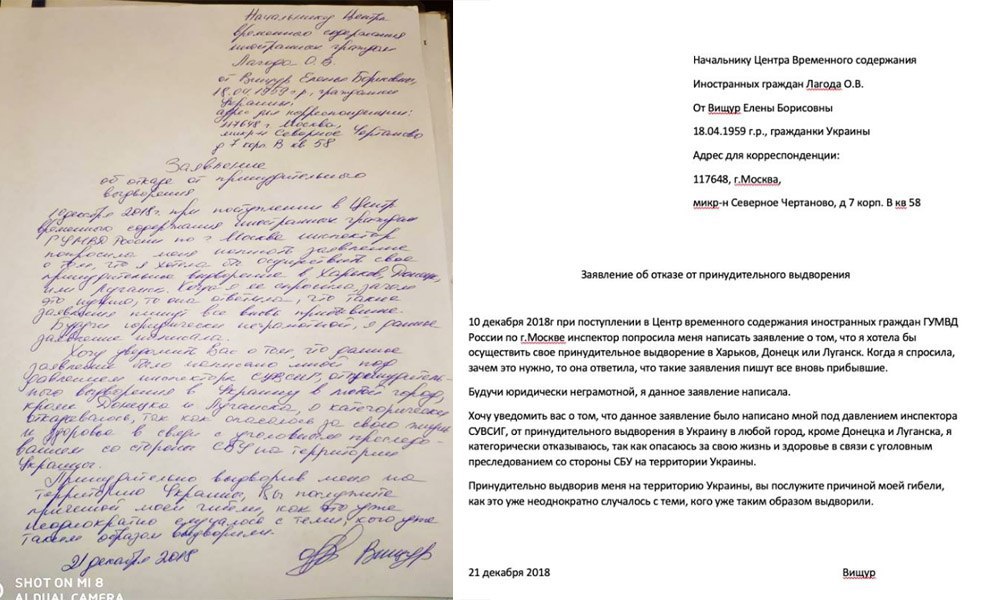 Начальнику Центра
временного содержания
иностранных граждан
Лагода О.В.
от Вищур Елены Борисовны,
18.04.1959 г.р., гражданки
Украины.
адрес для корреспонденции:
117648 г. Москва,
микр-н Северное Чертаново
д 7 корп. В кв 58
Заявление
об отказе от принудительного
выдворения
10 декабря 2018г. при поступлении в Центр
временного содержания иностранных граждан
ГУМВД России по г Москве инспектор
попросила меня написать заявление
о том, что я хотела бы осуществить свое
принудительное выдворение в Харьков, Донецк,
или Луганск. Когда я ее спросила, зачем
это нужно, то она ответила, что такие
заявления пишут все вновь прибывшие.
Будучи юридически неграмотной, я данное
заявление написала.
Хочу уведомить Вас о том, что данное
заявление было написано мной под
давлением инспектора СУВСИГ, от принудитель-
ного выдворения в Украину в любой город,
кроме Донецка и Луганска, я категорически
отказываюсь, так как опасаюсь за свою жизнь
и здоровье в связи с уголовным преследо-
ванием со стороны СБУ на территории
Украины.
Принудительно выдворив меня на
территорию Украины, Вы послужите
причиной моей гибели, как это уже
неоднократно случалось с теми, кого уже
таким образом выдворили.
21 декабря 2018 Вищур
SHOT ON MI 8
AI DUAL CAMERA
Начальнику Центра Временного содержания
Иностранных граждан Лагода О.В.
От Вищур Елены Борисовны
18.04.1959 г.р., гражданки Украины
Адрес для корреспонденции:
117648, г.Москва,
микр-н Северное Чертаново, д 7 корп. В кв 58
Заявление об отказе от принудительного выдворения
10 декабря 2018г при поступлении в Центр временного содержания иностранных граждан ГУМВД
России по г.Москве инспектор попросила меня написать заявление о том, что я хотела бы
осуществить свое принудительное выдворение в Харьков, Донецк или Луганск. Когда я спросила,
зачем это нужно, то она ответила, что такие заявления пишут все вновь прибывшие.
Будучи юридически неграмотной, я данное заявление написала.
Хочу уведомить вас о том, что данное заявление было написано мной под давлением инспектора
СУВСИГ, от принудительного выдворения в Украину в любой город, кроме Донецка и Луганска, я
категорически отказываюсь, так как опасаюсь за свою жизнь и здоровье в связи с уголовным
преследованием со стороны СБУ на территории Украины.
Принудительно выдворив меня на территорию Украины, вы послужите причиной моей гибели,
как это уже неоднократно случалось с теми, кого уже таким образом выдворили.
21 декабря 2018 Вищур